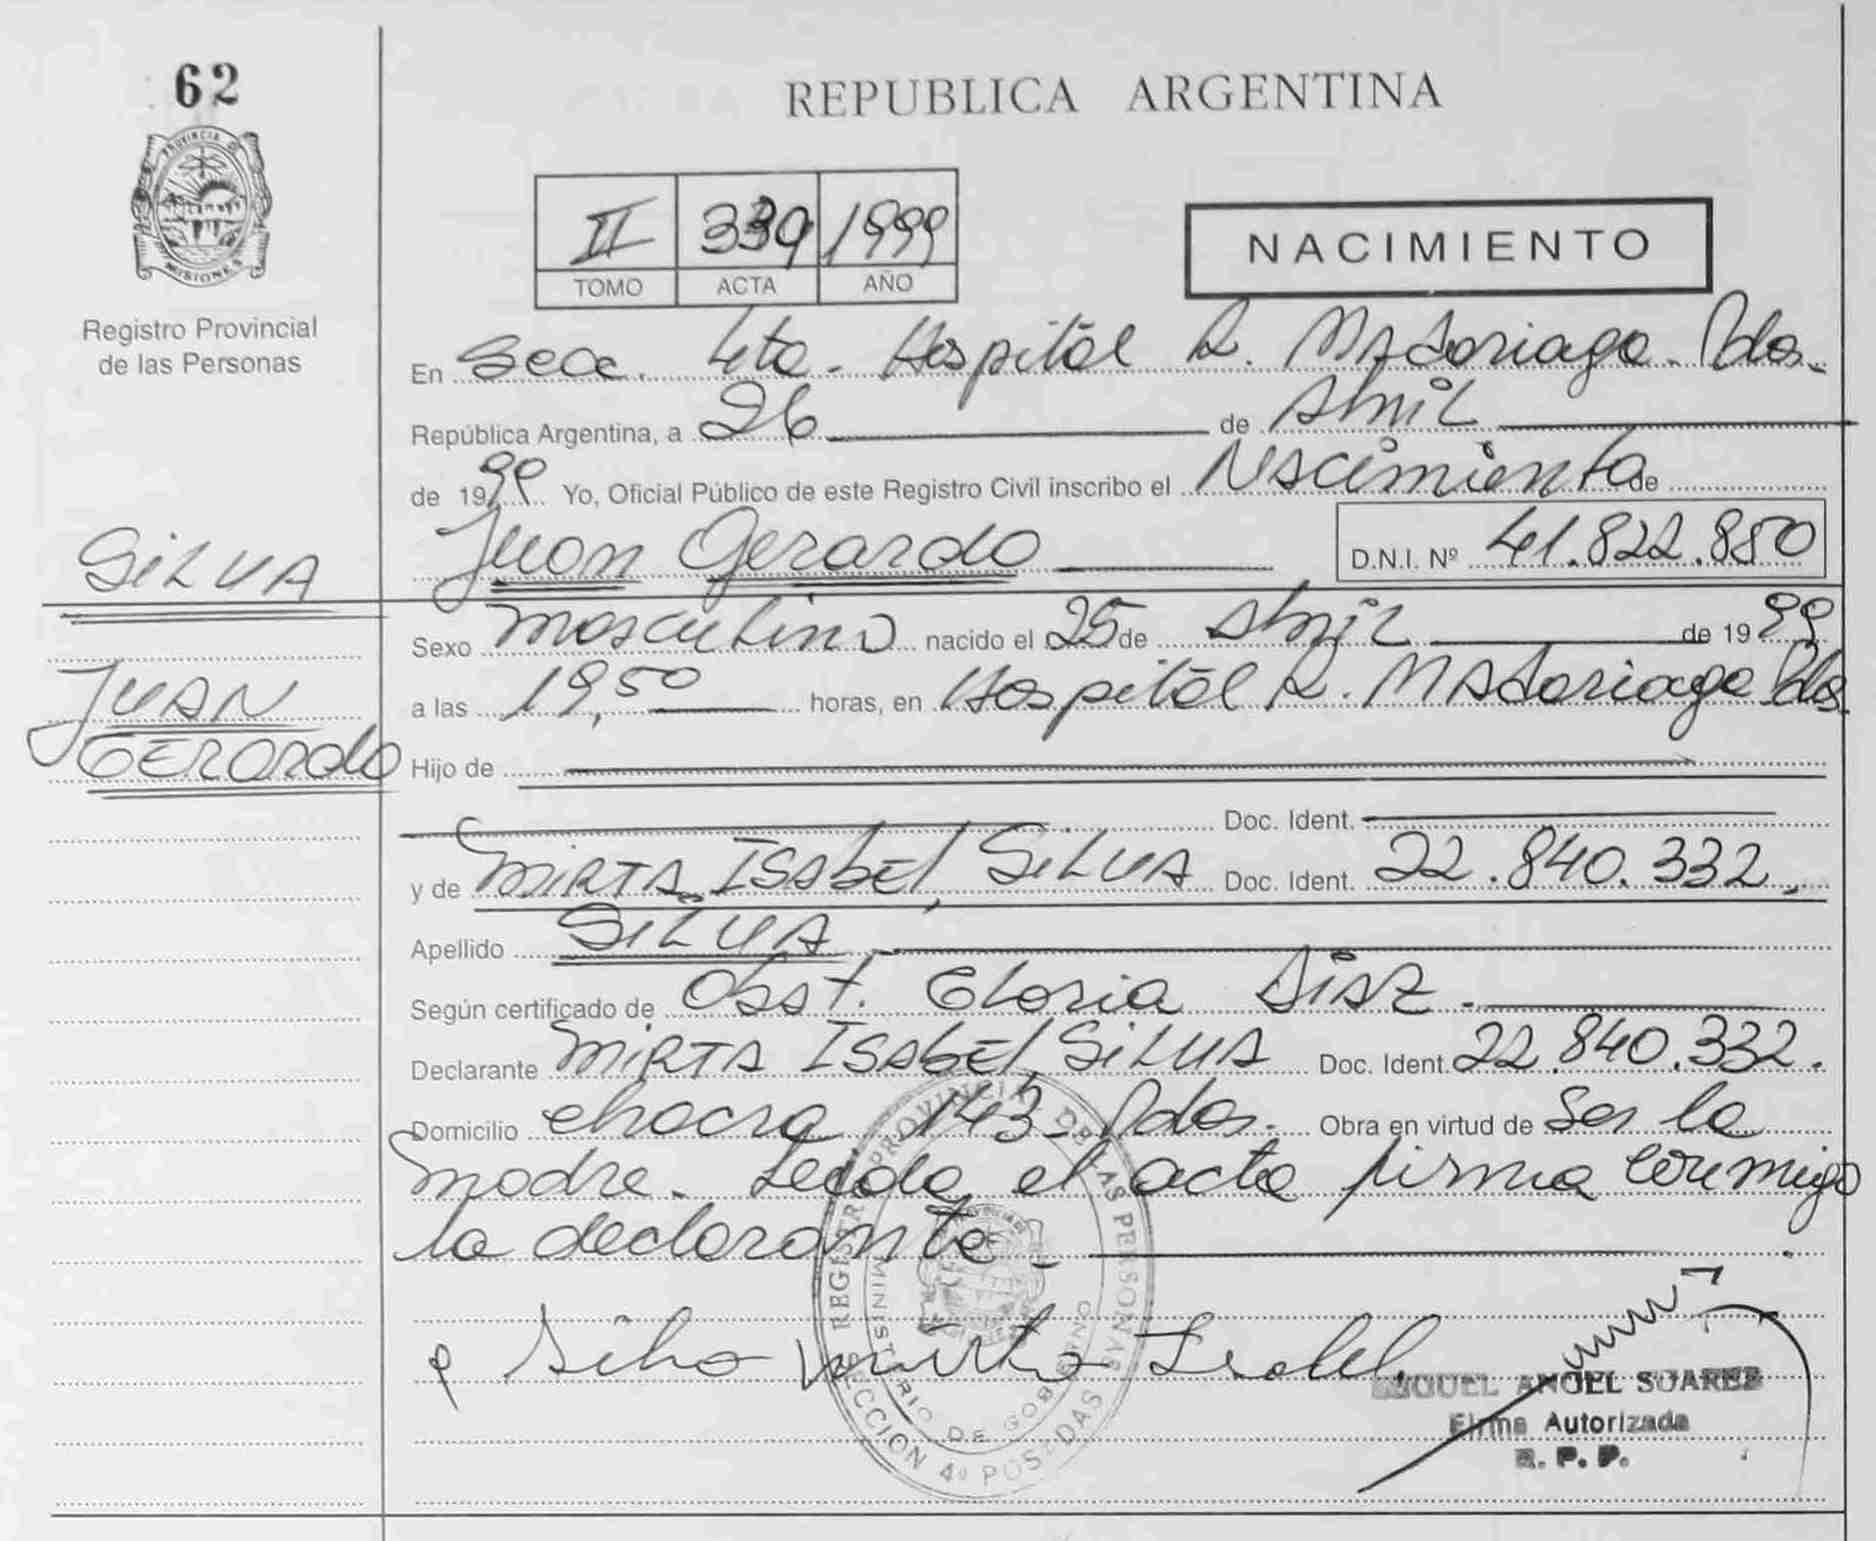 62
PROVINCIA D
MISIONES
Registro Provincial
de las Personas
REPUBLICA ARGENTINA
II 339 1999
TOMO ACTA AÑO
NACIMIENTO
En Secc. 4ta. Hospital R. MAdariaga. Pdas.
República Argentina, a 26 de Abril
de 1999 Yo, Oficial Público de este Registro Civil inscribo el Nacimiento de
SILVA
Juan Gerardo D.N.I. Nº 41.822.850
Sexo masculino nacido el 25 de Abril de 1999
JUAN
a las 19,50 horas, en Hospital R. MAdariaga Pdas
GERARdo
Hijo de
Doc. Ident.
y de MIRTA ISAbEL SILVA Doc. Ident. 22.840.332.
Apellido SILVA
Según certificado de Obst. Gloria DIAZ.
Declarante MIRTA ISAbEL SILVA Doc. Ident. 22.840.332.
Domicilio chacra 143 - Pdas. Obra en virtud de Ser la
madre. Leida el acta firma conmigo
la declarante.
Silva Mirta Isabel
REGISTRO PROVINCIAL DE LAS PERSONAS
MINISTERIO DE GOBIERNO
SECCION 4º POSADAS
MIGUEL ANGEL SUAREZ
Firma Autorizada
R. P. P.